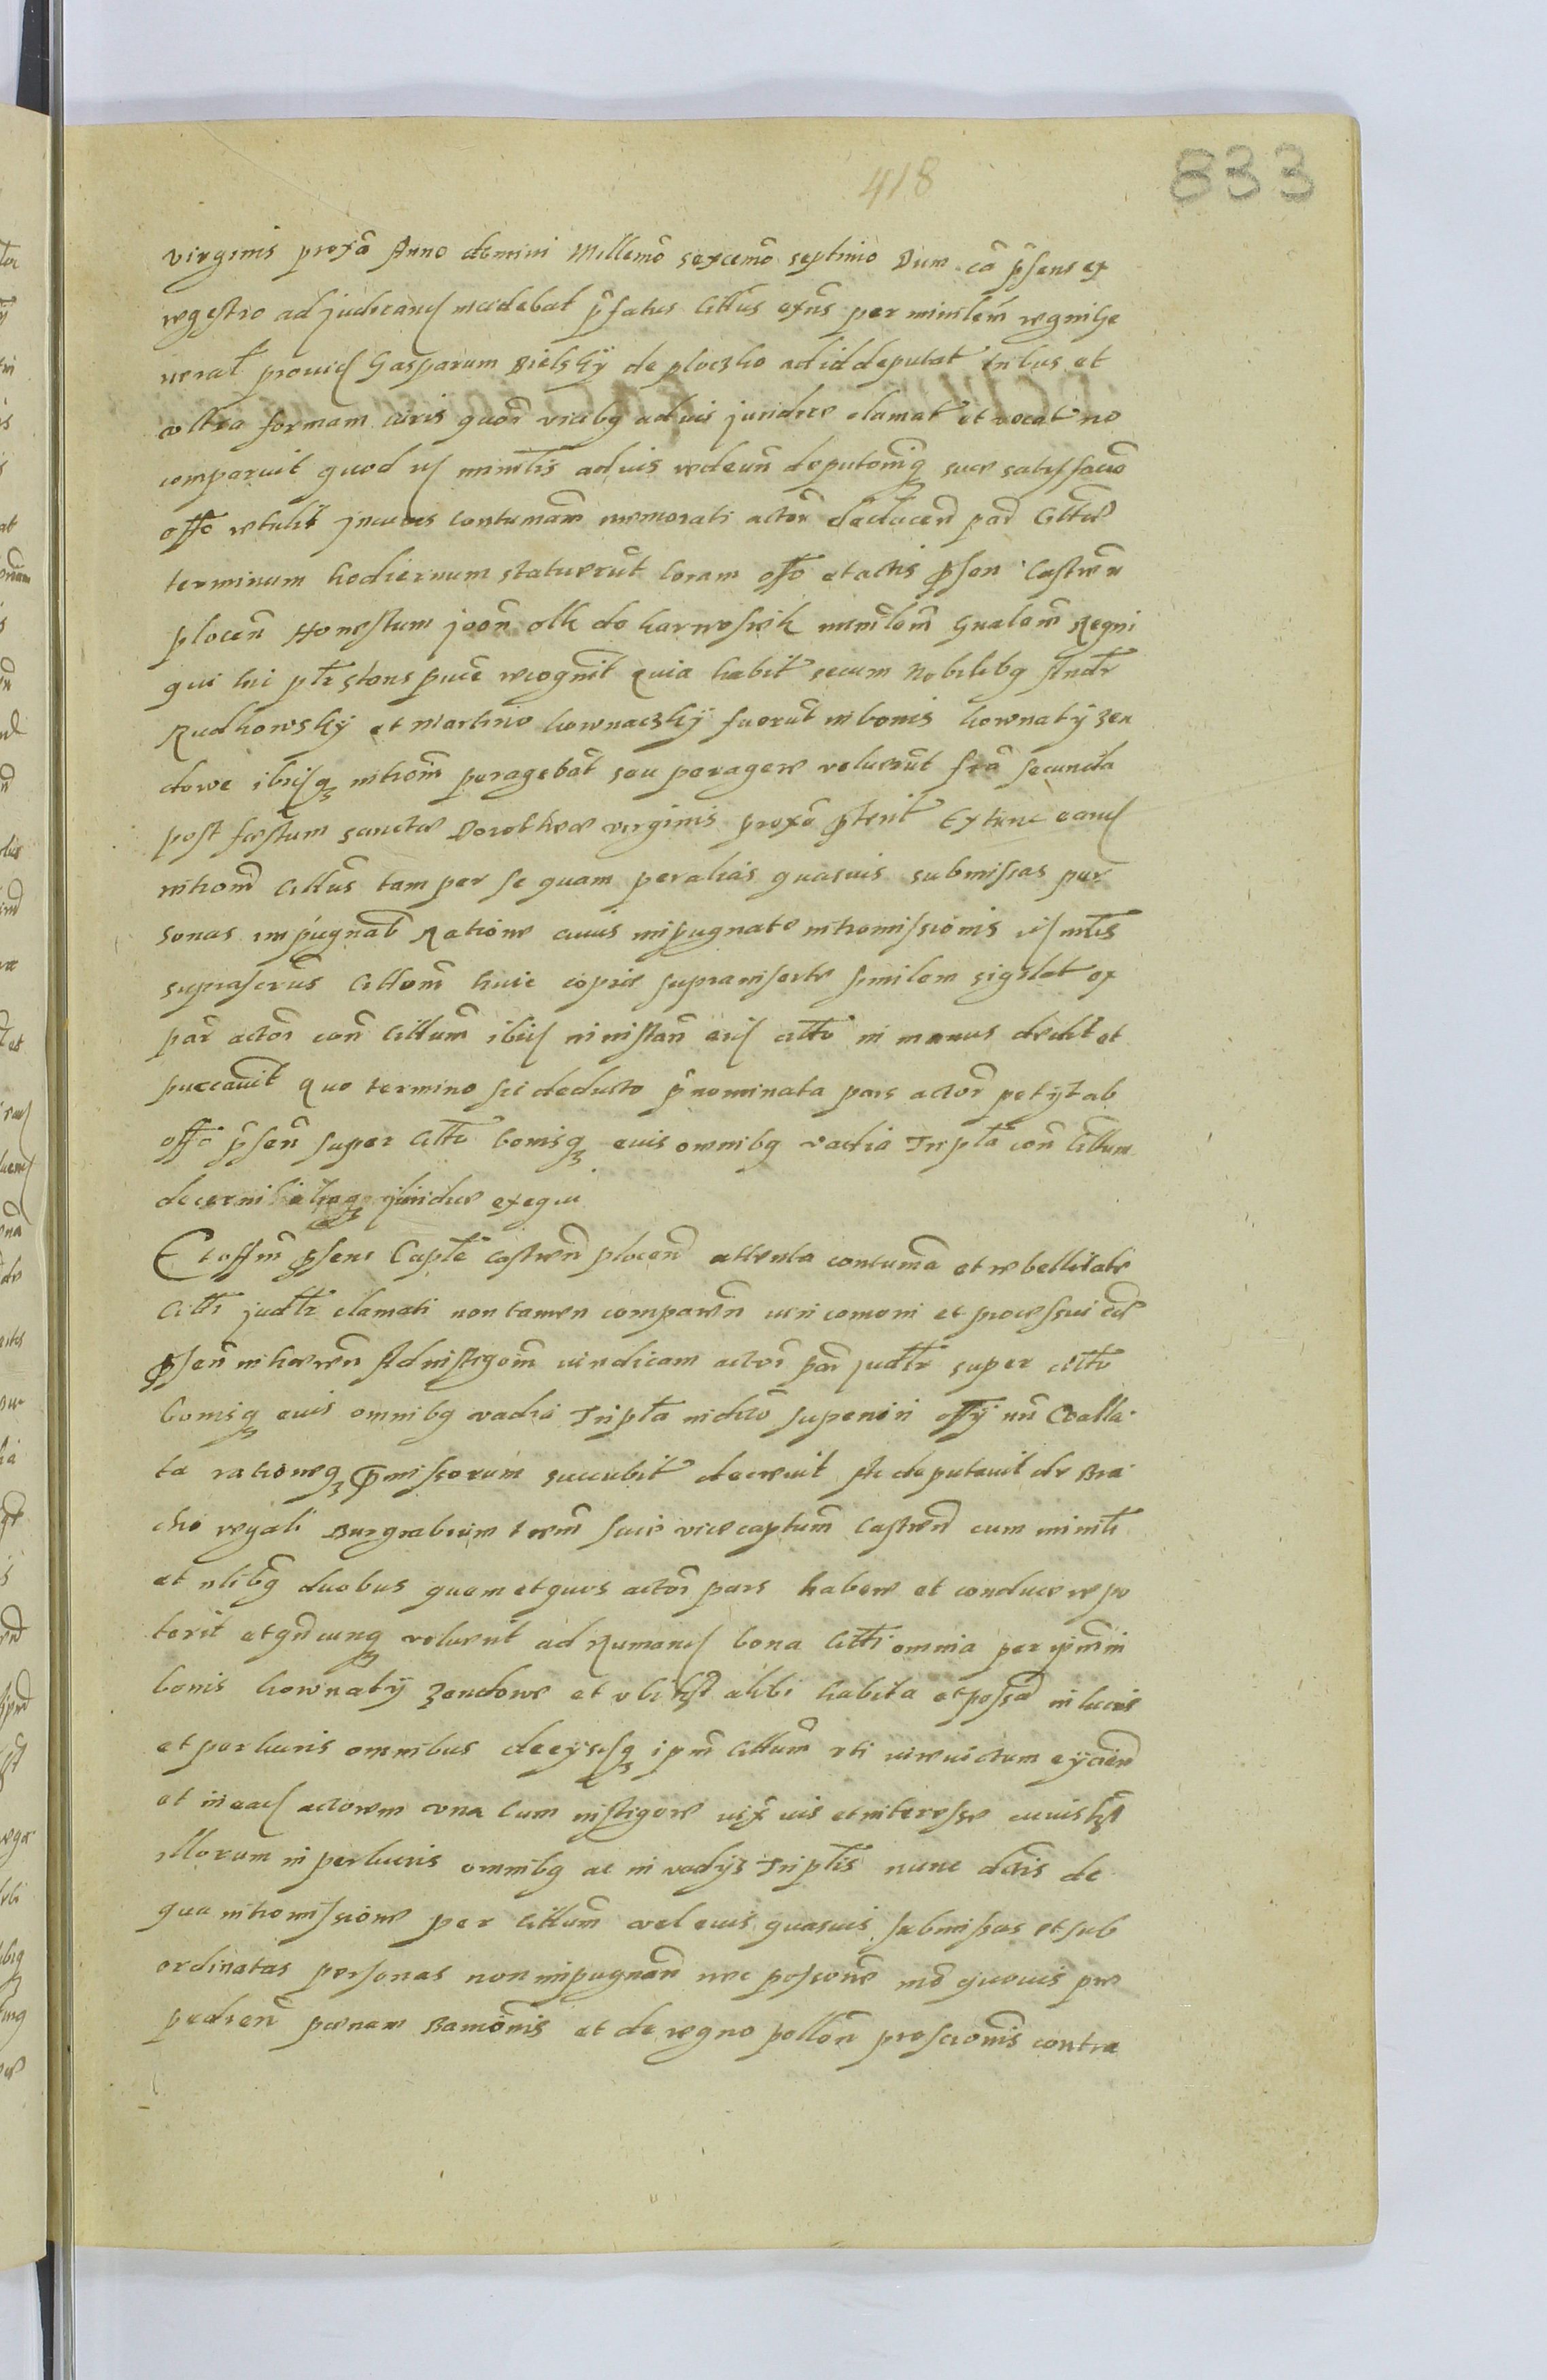 418
833
virginis proxa Anno domini Millemo sexcemo septimo Dum ca psens ex
regestro ad judicand incidebat pfatus Cittus exns per minlem regni ge
neral provid Gasparum Bielsky de ploczko ad id deputat tribus et
ultra formam iuris quor vicibg ad ius juridice clamat et vocat no
comparuit quod id minrlis ad ius redeun deputoniq sue satisfacio
offo retulit contumam memorati actor deducen par Citta
terminum hodiernum statuerut Coram offo et actis psen Castren
plocen Honestum joan olk de karwosiek minrlem Gnalem Regni
qui hic recognvit quia habit secum Nobilibg Andr
Rudkowsky et Martino kownaczky fuerut in bonis kownaty zen
dowe ibidq introm peragebat seu peragere voluerut fra secunda
post festum sanctae Dorotheae virginis proxa pterit Ex tunc eand
introm Cittus tam per se quam per alias quasuis submissas per
sonas impugnab Ratione cuius impugnate intromissionis id
suprascrus Cittom huic copie suprainserte similem sigilat ex
par actor con Cittum ibid in instan eid citto in manus dedit et
quo termino sic deducto pnominata pars actor petyt ab
offo psen super Citto bonisq euis omnibg vadia Tripla con Cittum
decerni juridice exequi
Et offm psens Capte castren plocen attenta contuma et rebellitate
Citti judtr clamati non tamen comparen iuri comoni et processui
psen inheren Ad instigom iuridicam actor par judtr super citto
bonisq euis omnibg vadia Tripla indicto superiori offy nri Coalla
ta rationeq pmissorum succubit decreuit Ac deputauit de Bra
chio regali Burgrabium seu vicecaptum Castren cum minrli
et nlibg duobus quem et quos actor pars habere et conducere po
terit voluerit ad Rumand bona Citti omnia per ipm in
bonis kownaty zendowe et ubi alibi habita et possa in lucris
et perlucris omnibus deeysdq ipm Cittum uti jure victum eyciend
et in ead actorem una cum instigore iux ius et interesse cuius
illorum in perlucris omnibg ac in vadys Triplis nunc dctis de
qua intromissione per Cittum vel euis quasuis submissas et sub
ordinatas personas non impugnan nec mo quouis pre
pedien penam Banionis et de regno pollon proscrionis contra